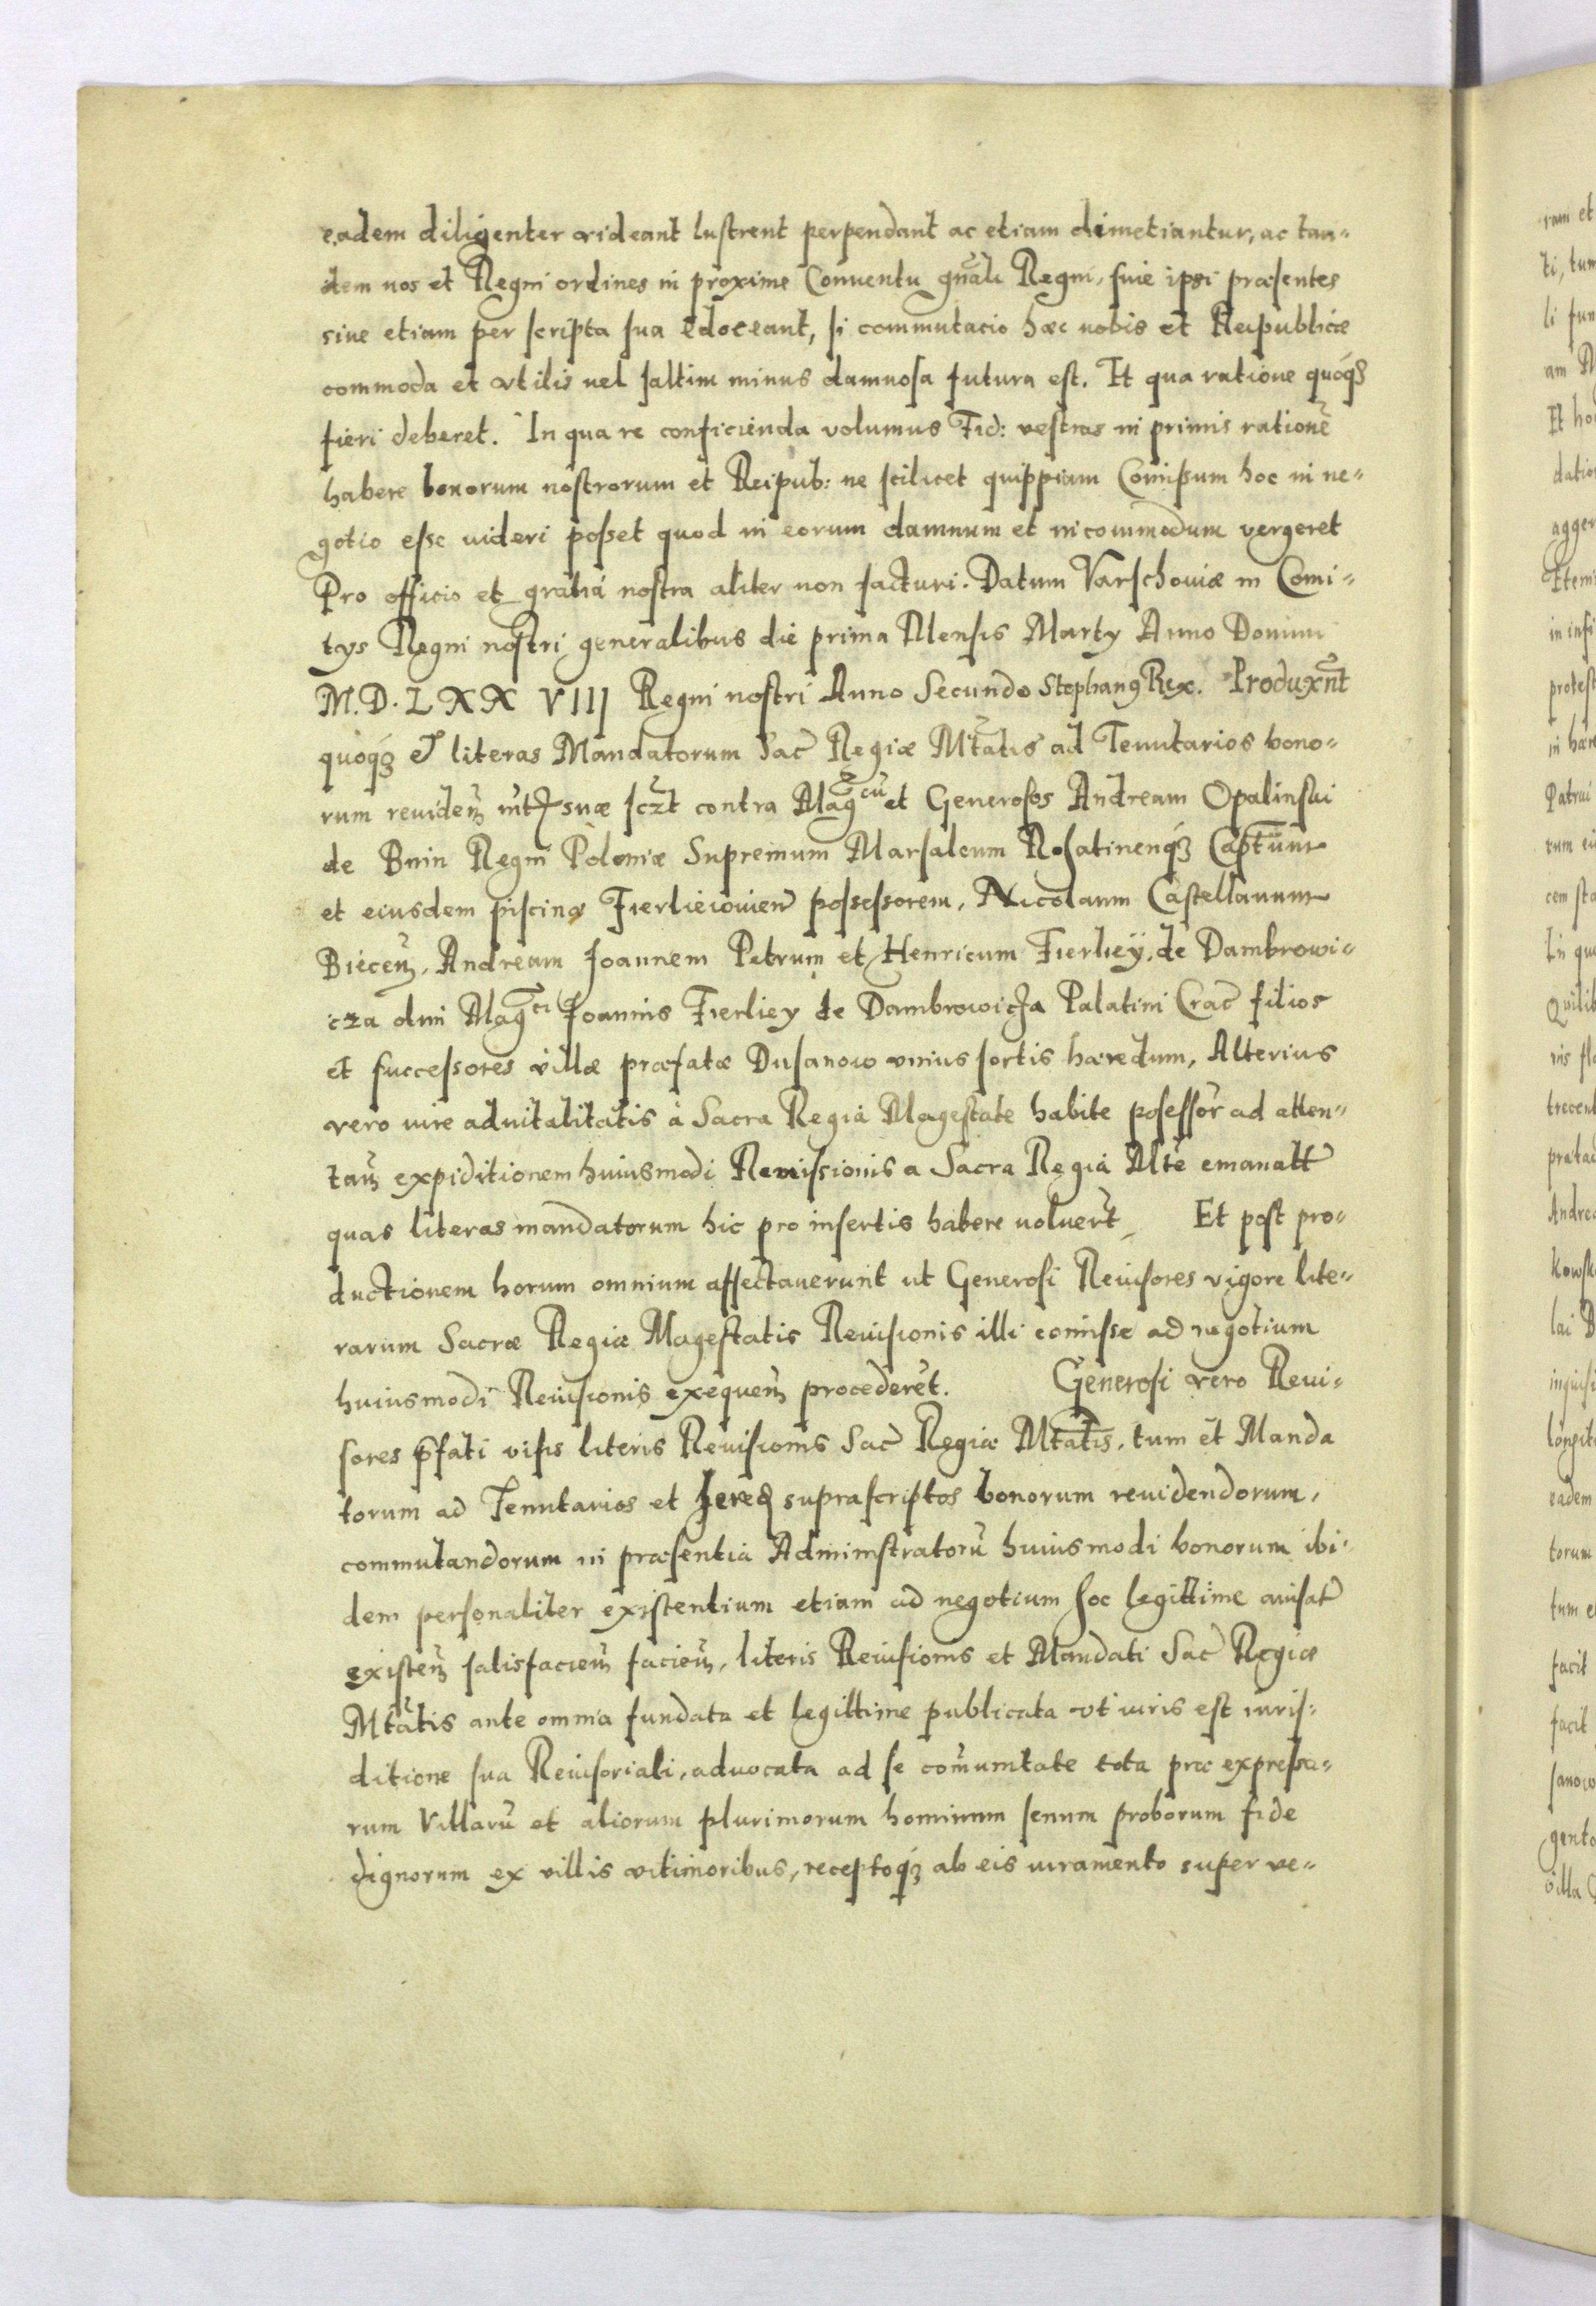 eadem diligenter videant lustrent perpendant ac etiam dimetiantur, ac tan-
dem nos et Regni ordines in proximo Conuentu gñali Regni, siue ipsi præsentes
siue etiam per scripta sua edoceant, si commutacio hæc nobis et Reipublicæ
commoda et vtilis uel saltim minus damnosa futura est. Et qua ratione quoq3
fieri deberet. In qua re conficienda volumus Fid: vestras in primis rationẽ
habere bonorum nostrorum et Reipub: ne scilicet quippiam Comissum hoc in ne-
gotio esse uideri posset quod in eorum damnum et incommodum vergeret
Pro officio et gratia nostra aliter non facturi. Datum Varschouiæ in Comi-
tys Regni nostri generalibus die prima Mensis Marty Anno Domini
M.D.LXX VIII Regni nostri Anno Secundo Stephang Rex. Produxñt
quoq3 et literas Mandatorum Sac Regiæ Mtatis ad Tenutarios bono-
rum reuideñ suæ sczt contra Mag cũ et Generosos Andream Opalinski
de Bnin Regni Poloniæ Supremum Marsalcum Rohatinenq3 Captũm
et eiusdem piscinæ Fierlieiouien possessorem, Nicolaum Castellanum
Biecen, Andream Joannem Petrum et Henricum Fierliey, de Dambrowi-
cza olim Mag ci Joannis Fierliey de Dambrowicza Palatini Crac filios
et successores villæ præfatæ Dusanow vnius sortis hæredum, Alterius
vero iure aduitalitatis à Sacra Regia Magestate habite posessor ad atten-
tañ expiditionem huiusmodi Reuissionis a Sacra Regia Mte emanatt
quas literas mandatorum hic pro insertis habere uoluert, Et post pro-
ductionem horum omnium affectauerunt ut Generosi Reuisores vigore lite-
rarum Sacræ Regiæ Magestatis Reuisionis illi comisse ad negotium
huiusmodi Reuisionis exequeñ procederẽt. Generosi vero Reui-
sores pfati visis literis Reuisionis Sac Regiæ Mtatis, tum et Manda
torum ad Tenutarios et hered suprascriptos bonorum reuidendorum,
commutandorum in præsentia Administratorũ huiusmodi bonorum ibi-
dem personaliter existentium etiam ad negotium hoc legittime auisat
existeñ satisfacieñ facieñ, literis Reuisionis et Mandati Sac Regiæ
Mtatis ante omnia fundata et legittime publicata vt iuris est iuris-
ditione sua Reuisoriali, aduocata ad se comunitate tota præ expressa-
rum Villarũ et aliorum plurimorum hominum senum proborum fide
dignorum ex villis vitimoribus, receptoq3 ab eis iuramento super ve-